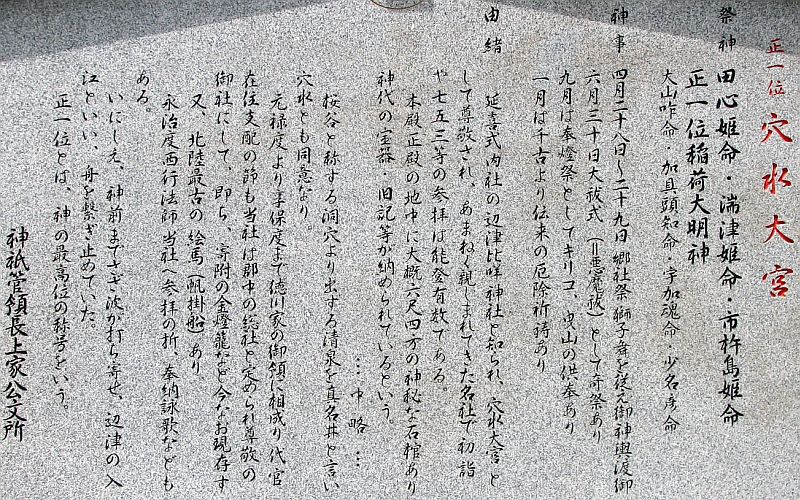 正一位 穴水大宮
祭神 田心姫命・湍津姫命・市杵島姫命
正一位稲荷大明神
大山咋命・加具頭知命・宇加魂命・少名彦命
神事 四月二十八日〜二十九日 郷社祭 獅子舞を従え御神輿渡御
六月三十日大祓式（＝悪魔祓）として奇祭あり
九月は奉燈祭としてキリコ、曳山の供奉あり
一月は千古より伝来の厄除祈祷あり
由緒 延喜式内社の辺津比咩神社と知られ、穴水大宮と
して尊敬され、あまねく親しまれてきた名社で初詣
や七五三等の参拝は能登有数である。
本殿正殿の地中に大概六尺四方の神秘な石棺あり
神代の宝器・旧記等が納められているという。
…中略…
桜谷と称する洞穴より出する清泉を真名井と言い
穴水とも同意なり。
元禄度より享保度まで徳川家の御領に相成り代官
在住支配の節も当社は郡中の総社と定められ尊敬の
御社にして、即ち、寄附の金燈籠など今なお現存す
又、北陸最古の絵馬（帆掛船）あり
永治度西行法師当社へ参拝の折、奉納詠歌なども
ある。
いにしえ、神前までさざ波が打ち寄せ、辺津の入
江といい 舟を繋ぎ止めていた
正一位とは、神の最高位の称号をいう。
神祇管領長上家公文所